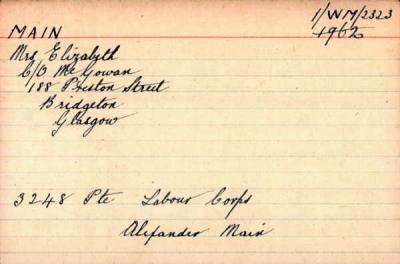 1/WM/2323
1962
MAIN
Mrs Elizabeth
C/O McGowan
188 Preston Street
Bridgeton
Glasgow
3248 Pte Labour Corps
Alexander Main